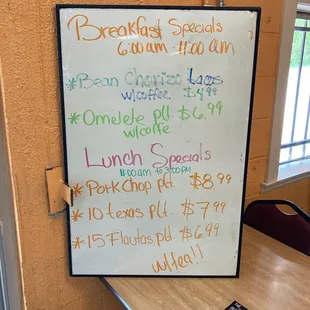 Breakfast Specials
6:00am - 11:00 am
* Bean Chorizo Tacos
w/coffee $4.99
* Omelete plt. $6.99
w/coffe
Lunch Specials
11:00 am to 3:00 PM
* Pork Chop plt. $8.99
* 10 texas plt. $7.99
* 15 Flautas plt $6.99
w/tea!!